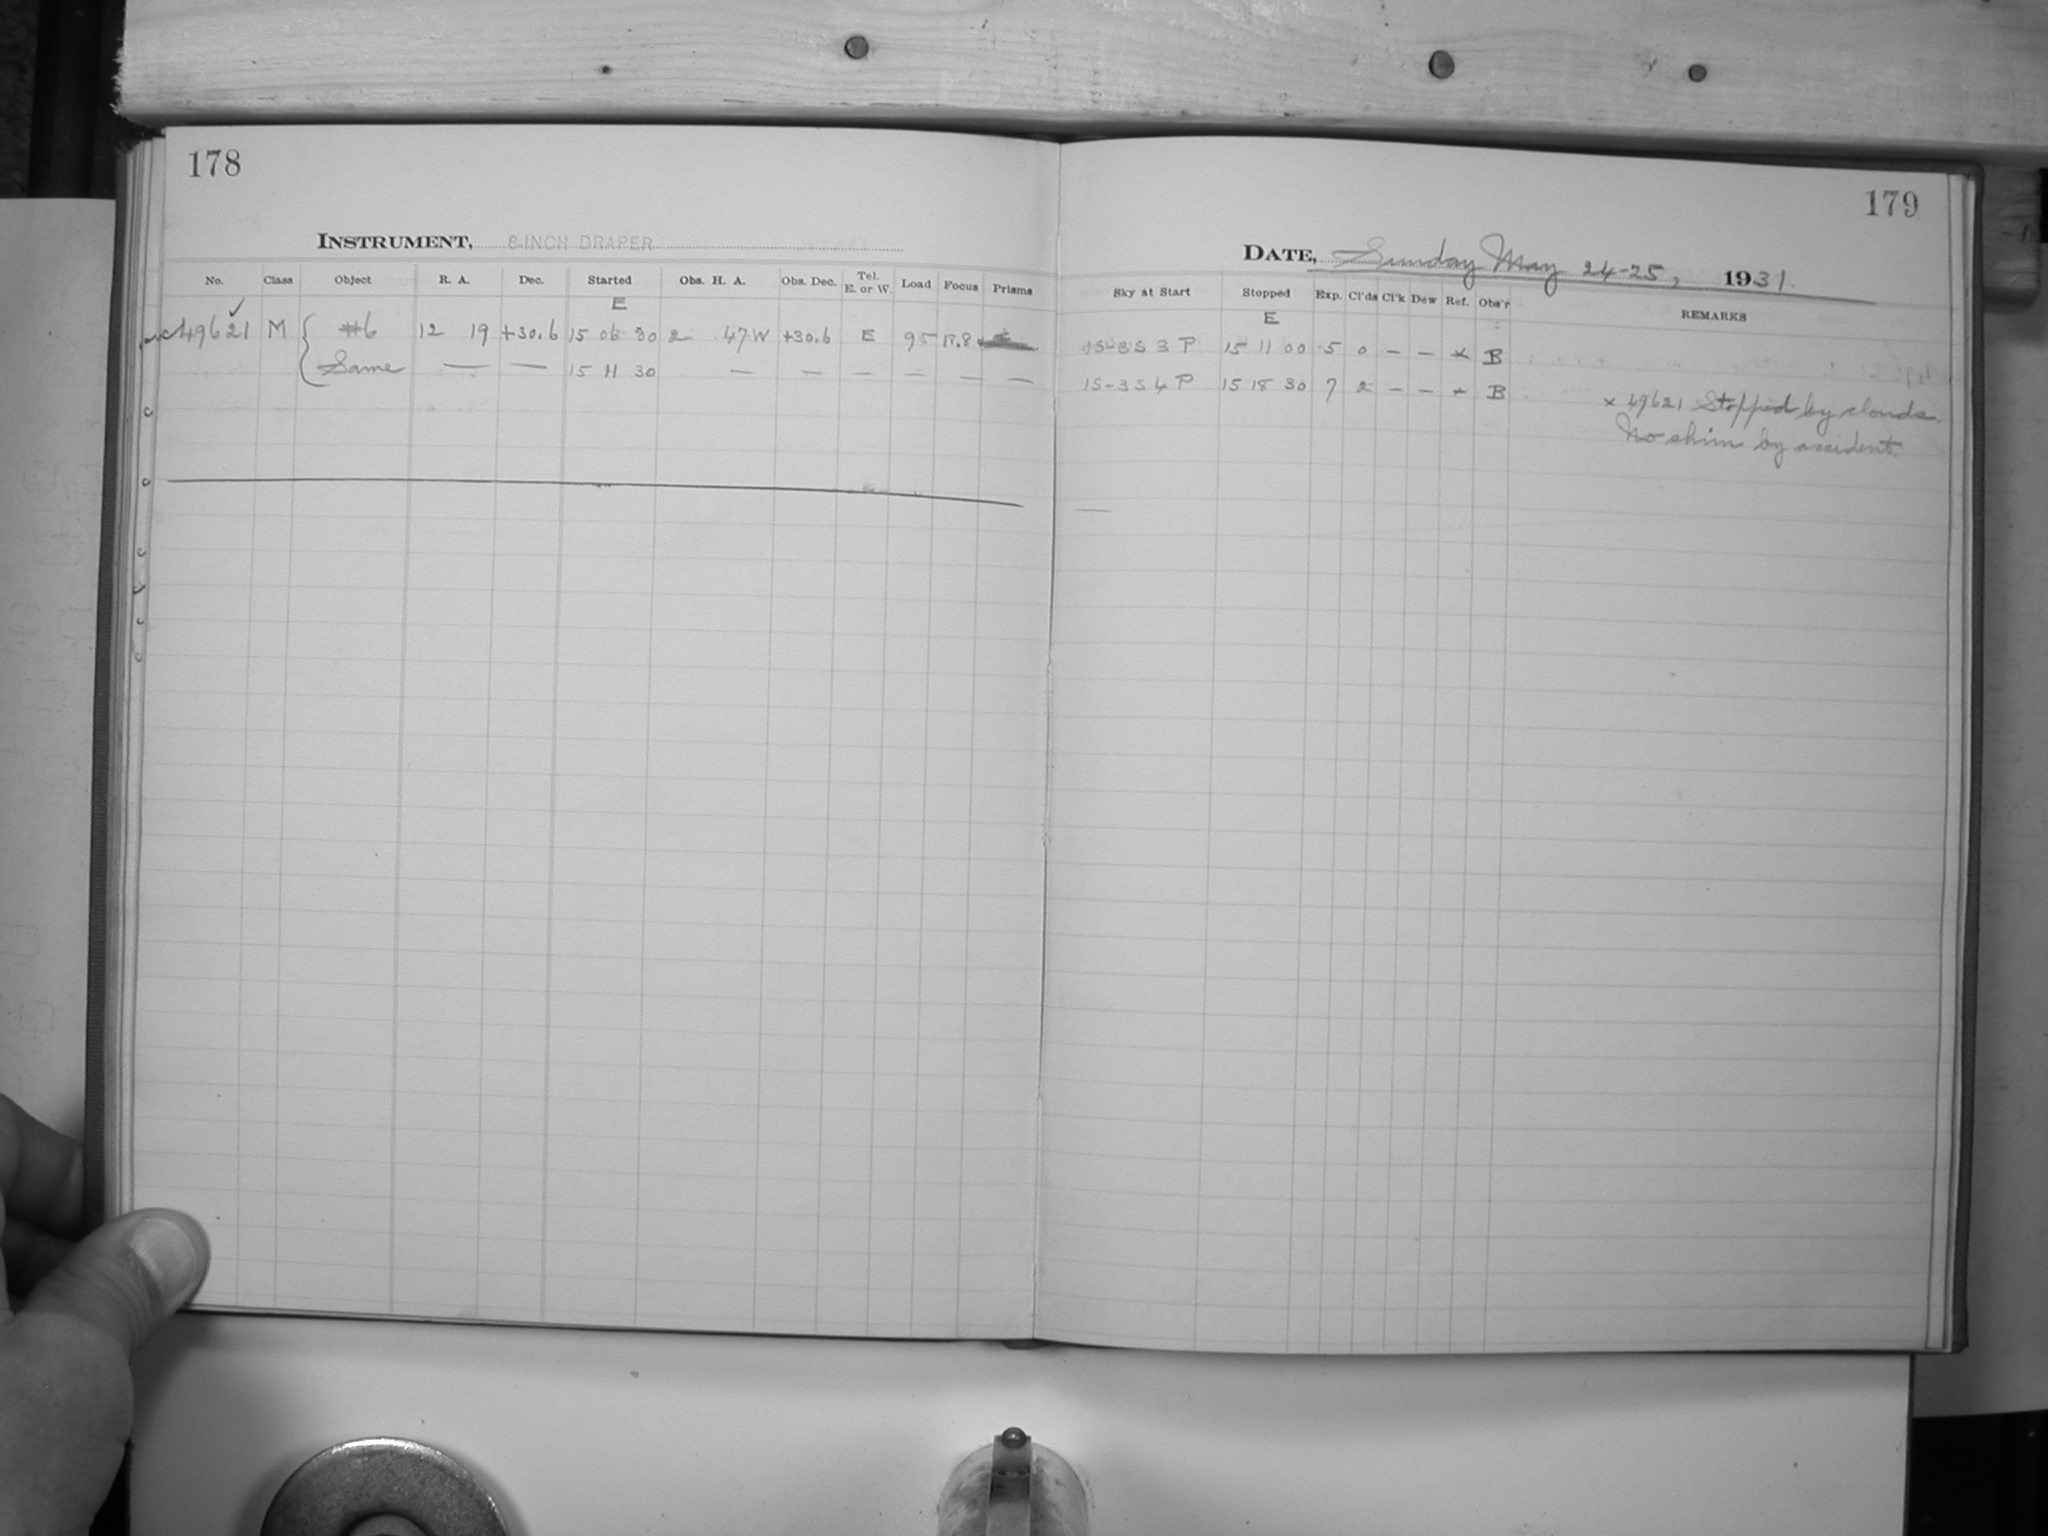 178
INSTRUMENT, 8-INCH DRAPER
No. Class Object R. A. Dec. Started Obs. H. A. Obs. Dec. Tel. E. or W. Load Focus Prisms
E
49621 M #6 12 19 +30.6 15 06 30 2 47 W +30.6 E 95 17.8
Same — — 15 11 30 — — — — — —
179
DATE, Sunday May 24-25, 1931.
Sky at Start Stopped Exp. Cl'ds Cl'k Dew Ref. Obs'r REMARKS
E
3 P 15 11 00 5 0 — — × B
1S-3S 4 P 15 18 30 7 2 — — × B
× 49621 Stopped by clouds.
No shim by accident.